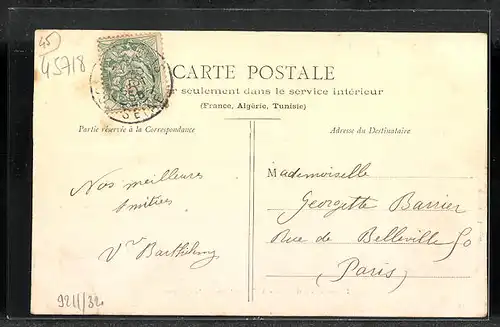 45
45718
CARTE POSTALE
seulement dans le service intérieur
(France, Algérie, Tunisie)
Partie réservée à la Correspondance
Adresse du Destinataire
Nos meilleures
Amitiés
Vve Barthélemy
Mademoiselle
Georgette Barrier
Rue de Belleville 50
(Paris)
9211/32